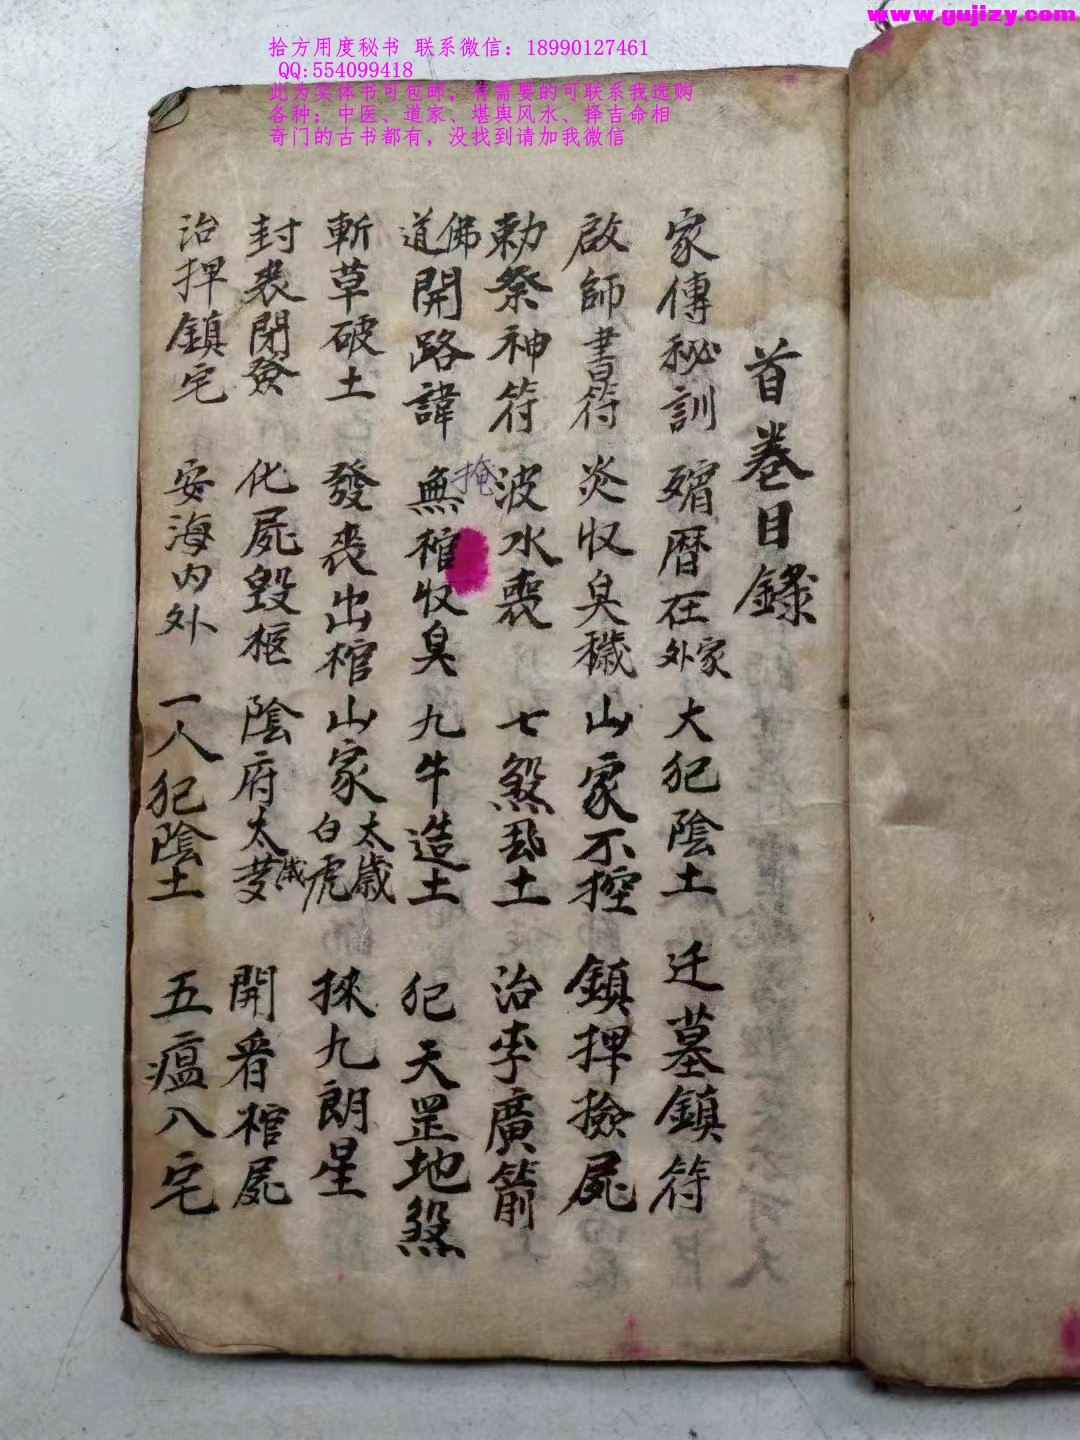 www.gujizy.com
拾方用度秘书 联系微信：18990127461
QQ:554099418
此为实体书可包邮，有需要的可联系我选购
各种：中医、道家、堪舆风水、择吉命相
奇门的古书都有，没找到请加我微信
首卷目錄
家傳秘訓 殯曆在家外 大犯陰土 迁墓鎮符
啟師書符 炎収臭穢 山家不控 鎮押撿屍
勅祭神符 波水喪 七煞 土 治李廣箭
佛道開路諱 無掩棺収臭 九牛造土 犯天罡地煞
斬草破土 發喪出棺 山家太歲白虎 捸九朗星
封喪閉殮 化屍毀柩 陰府太歲 開看棺屍
治押鎮宅 安海内外 一人犯陰土 五瘟八宅